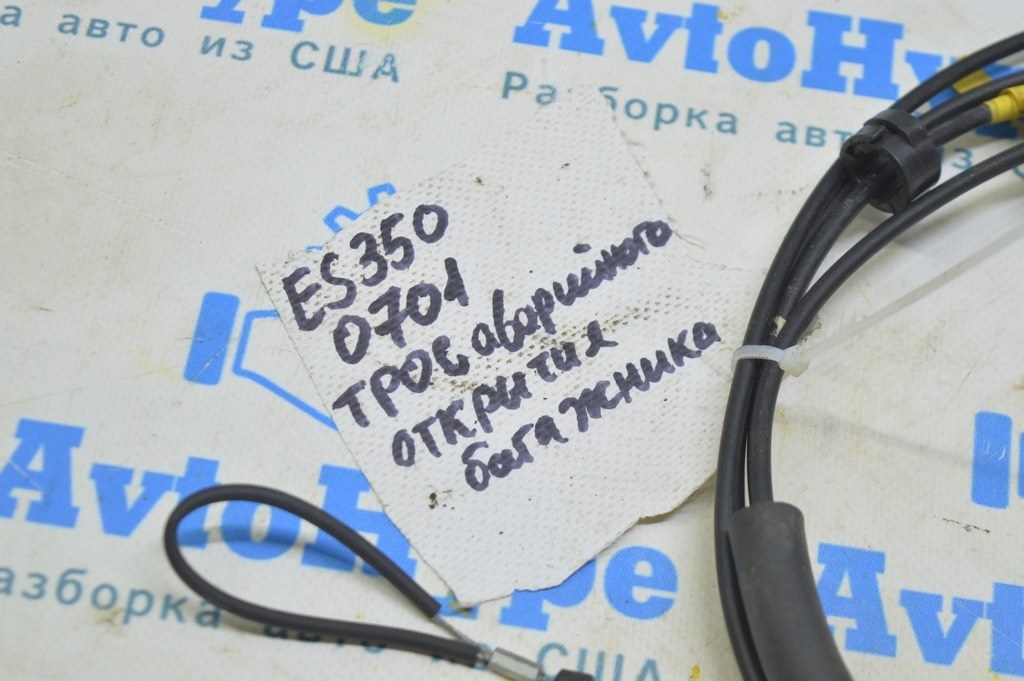 ype
а авто из США
AvtoHy
Разборка авто из С
ES350
0701
трос аварийного
открытия
багажника
AvtoHype
азборка
США
Avto